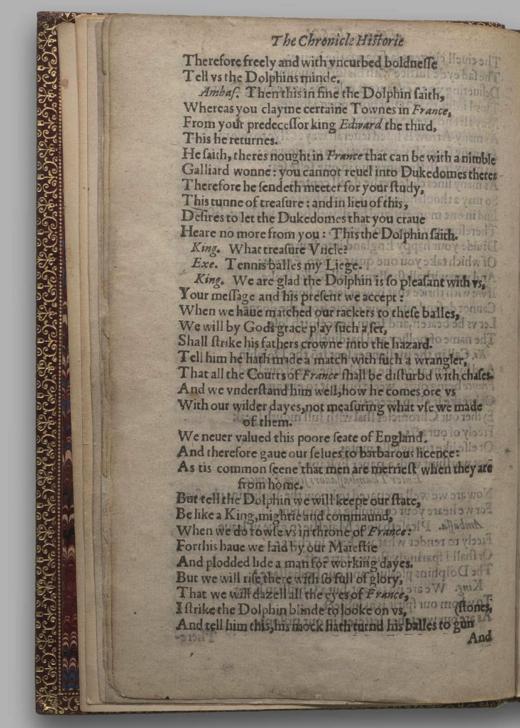 The Chronicle Historie
Therefore freely and with vncurbed boldnesse
Tell vs the Dolphins minde.
Ambas. Then this in fine the Dolphin saith,
Whereas you clayme certaine Townes in France,
From your predecessor king Edward the third,
This he returnes.
He saith, theres nought in France that can be with a nimble
Galliard wonne: you cannot reuel into Dukedomes there:
Therefore he sendeth meeter for your study,
This tunne of treasure: and in lieu of this,
Desires to let the Dukedomes that you craue
Heare no more from you: This the Dolphin saith.
King. What treasure Vncle?
Exe. Tennis balles my Liege.
King. We are glad the Dolphin is so pleasant with vs,
Your message and his present we accept:
When we haue matched our rackets to these balles,
We will by Gods grace play such a set,
Shall strike his fathers crowne into the hazard.
Tell him he hath made a match with such a wrangler,
That all the Courts of France shall be disturbd with chases.
And we vnderstand him well, how he comes ore vs
With our wilder dayes, not measuring what vse we made
of them.
We neuer valued this poore seate of England.
And therefore gaue our selues to barbarous licence:
As tis common seene that men are merriest when they are
from home.
But tell the Dolphin we will keepe our state,
Be like a King, mightie and commaund,
When we do rowse vs in throne of France:
For this haue we laid by our Maiestie
And plodded lide a man for working dayes.
But we will rise there with so full of glory,
That we will dazell all the eyes of France,
I strike the Dolphin blinde to looke on vs, (stones,
And tell him this, his mock hath turnd his balles to gun
And